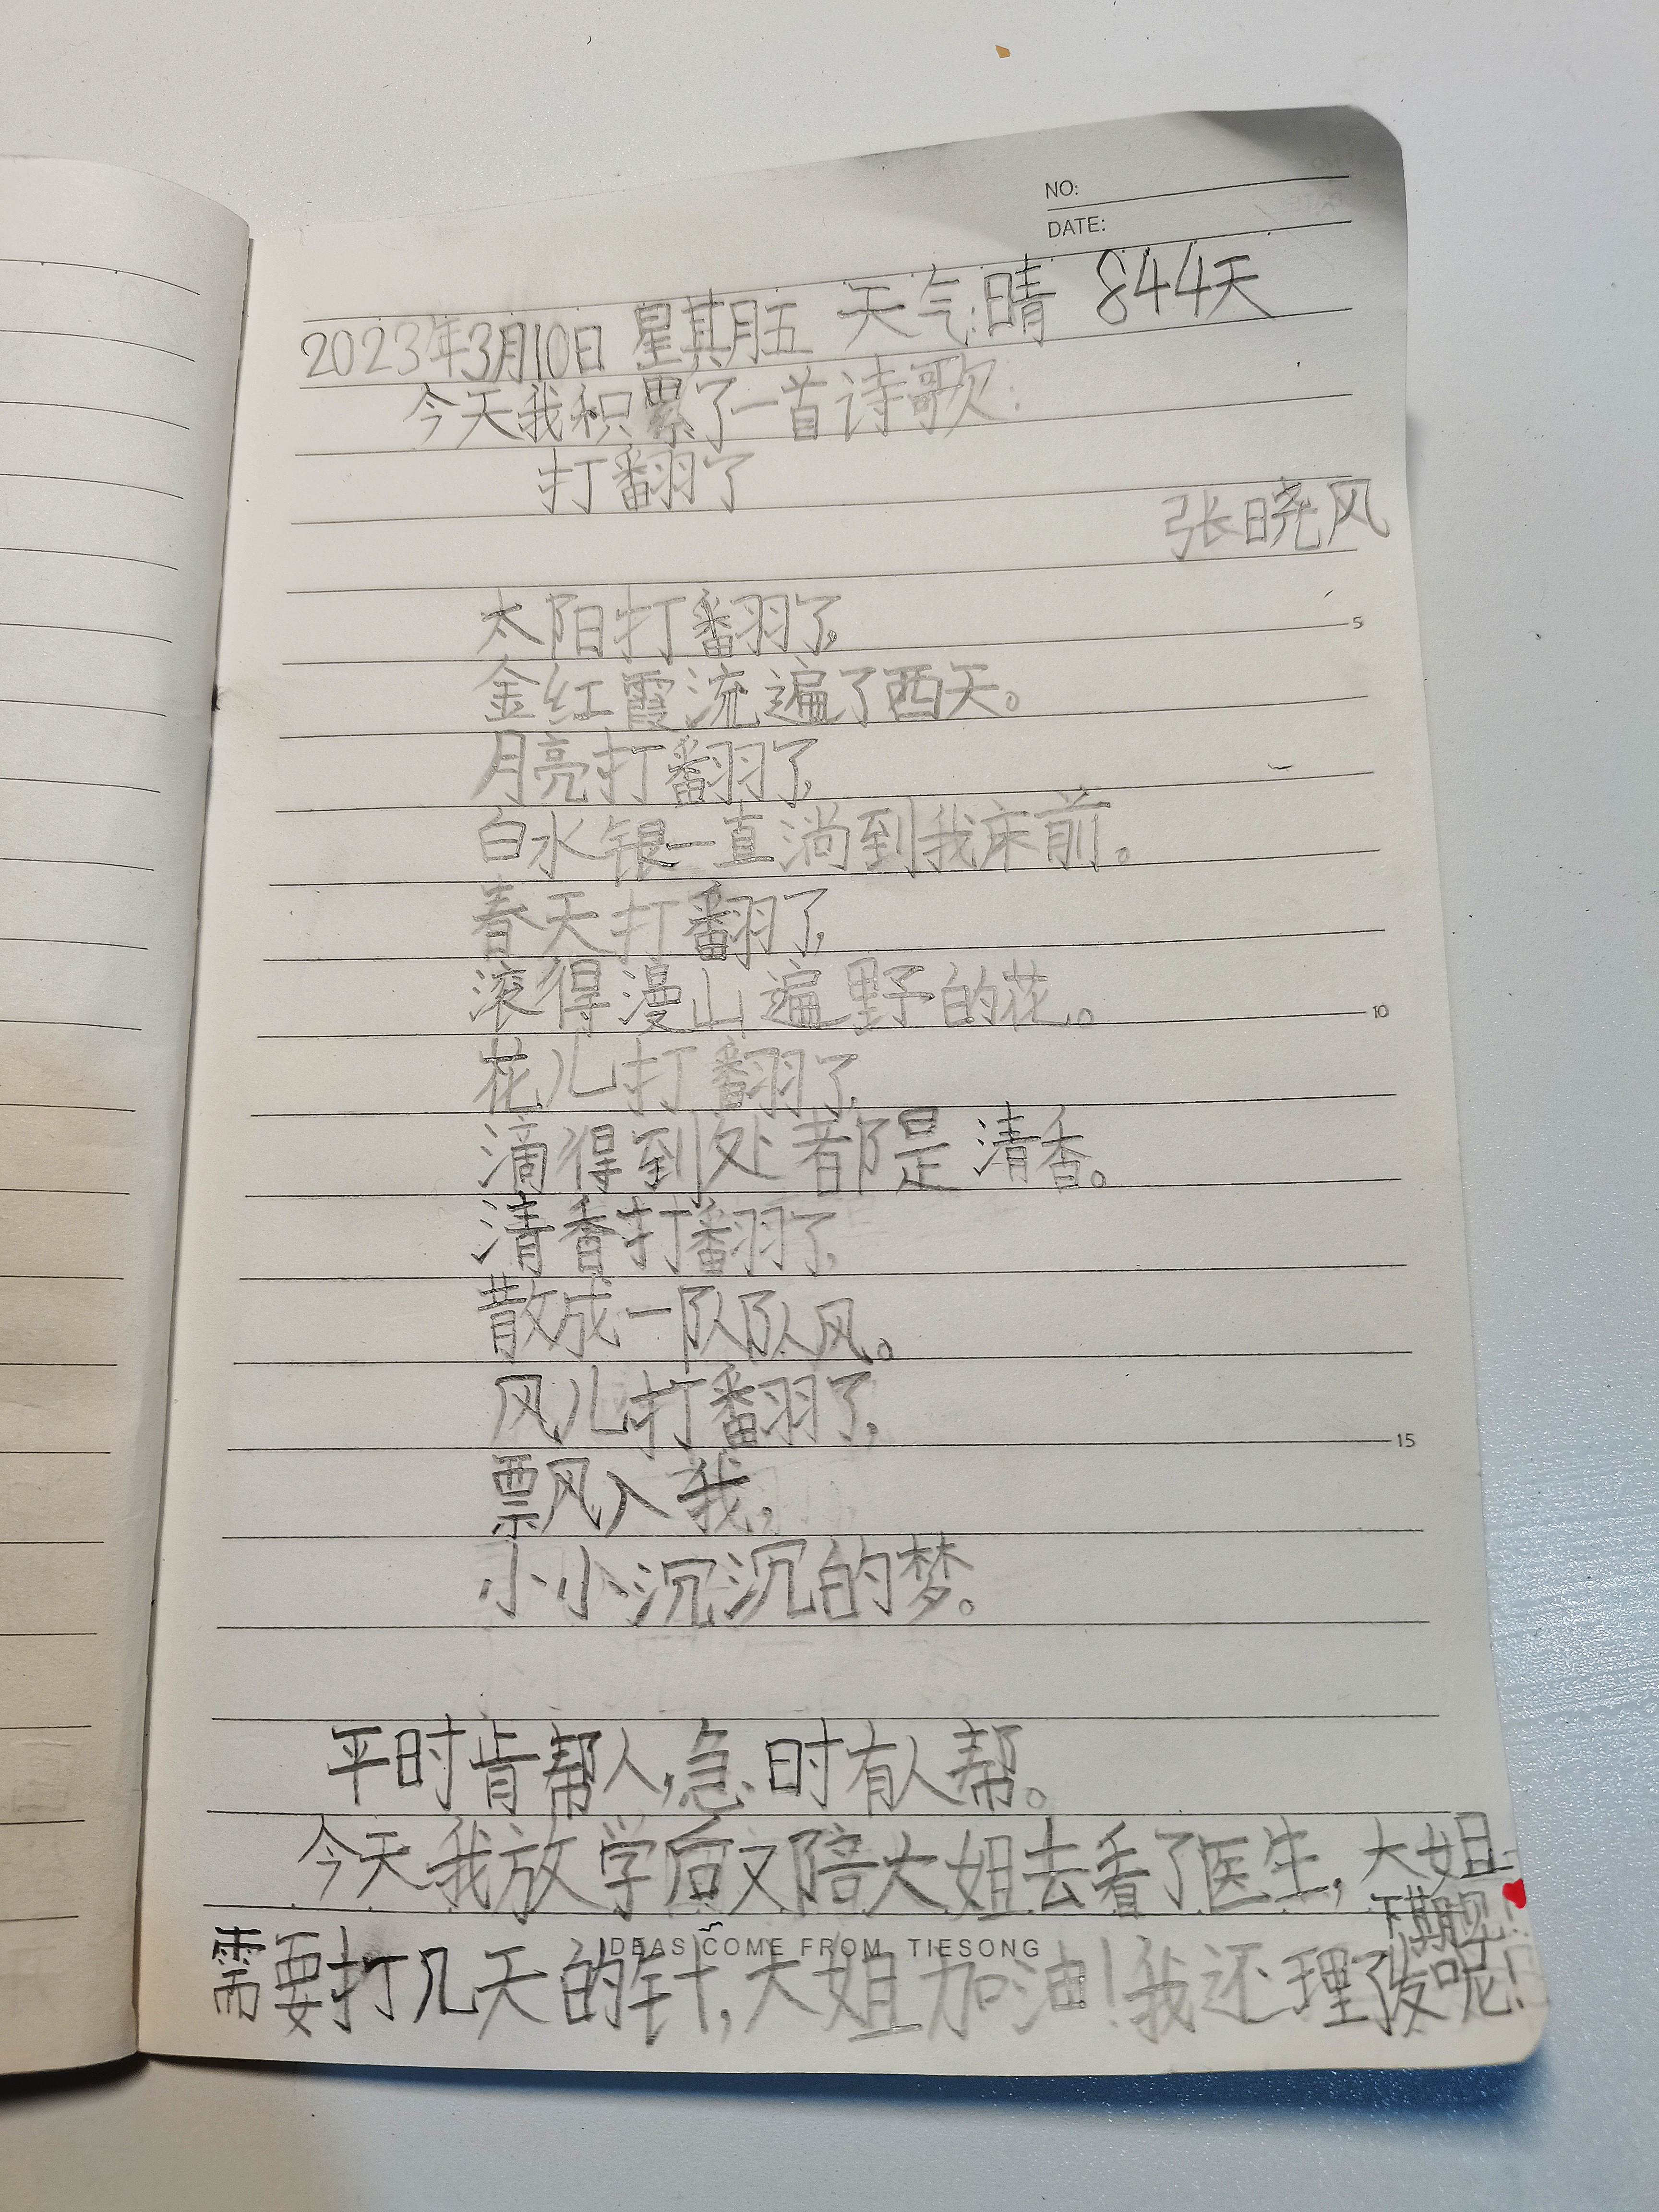 NO:
DATE:
2023年3月10日 星期五 天气:晴 844天
今天我积累了一首诗歌:
打翻了
张晓风
太阳打翻了,
5
金红霞流遍了西天。
月亮打翻了,
白水银一直淌到我床前。
春天打翻了,
滚得漫山遍野的花。
10
花儿打翻了,
滴得到处都是清香。
清香打翻了,
散成一队队风。
风儿打翻了,
15
飘入我,
小小沉沉的梦。
平时肯帮人,急时有人帮。
今天我放学后又陪大姐去看了医生,大姐
需要打几天的针,大姐加油!我还理了发呢!
下期见!
IDEAS COME FROM TIESONG